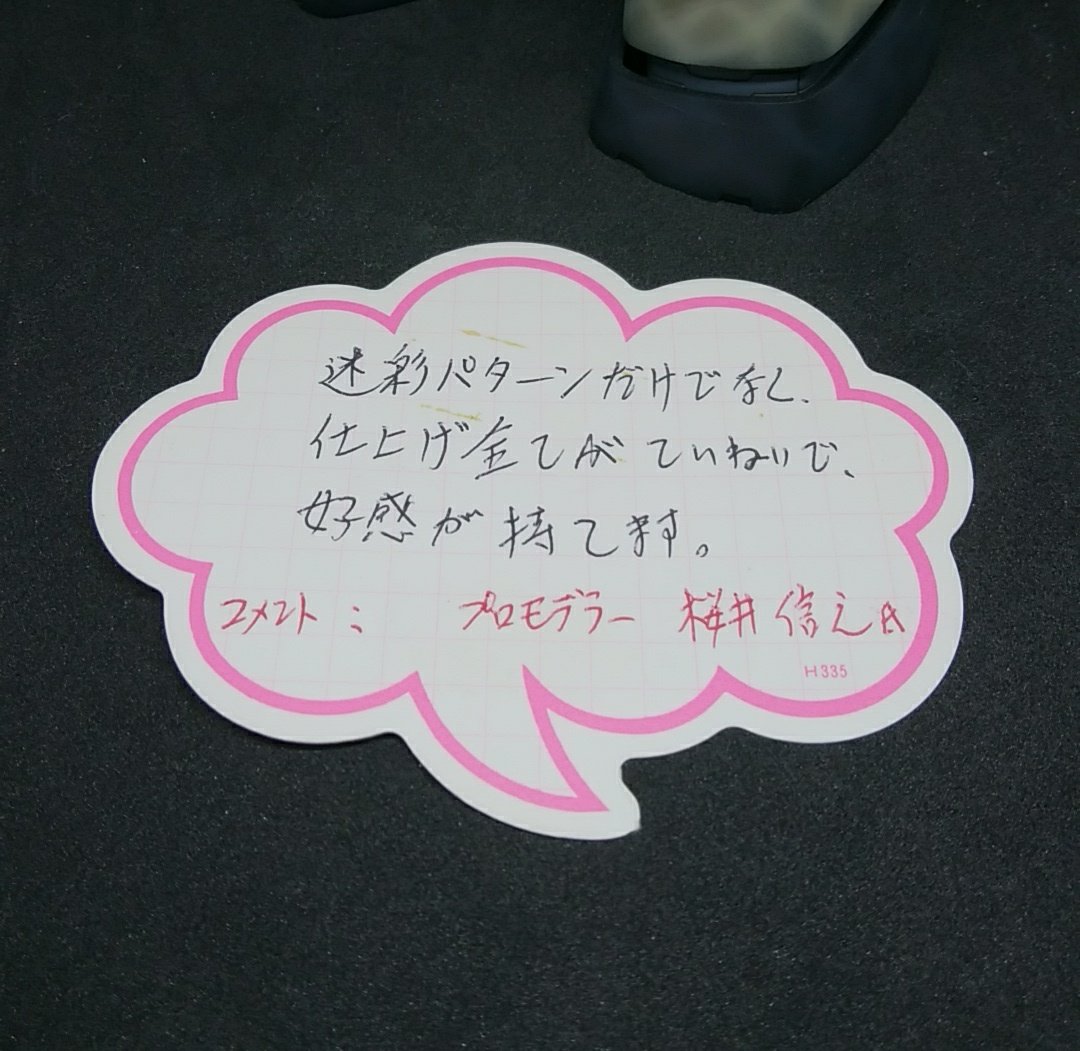 迷彩パターンだけでなし、
仕上げ全てがていねいで、
好感が持てます。
コメント： プロモデラー 桜井信之氏
H335